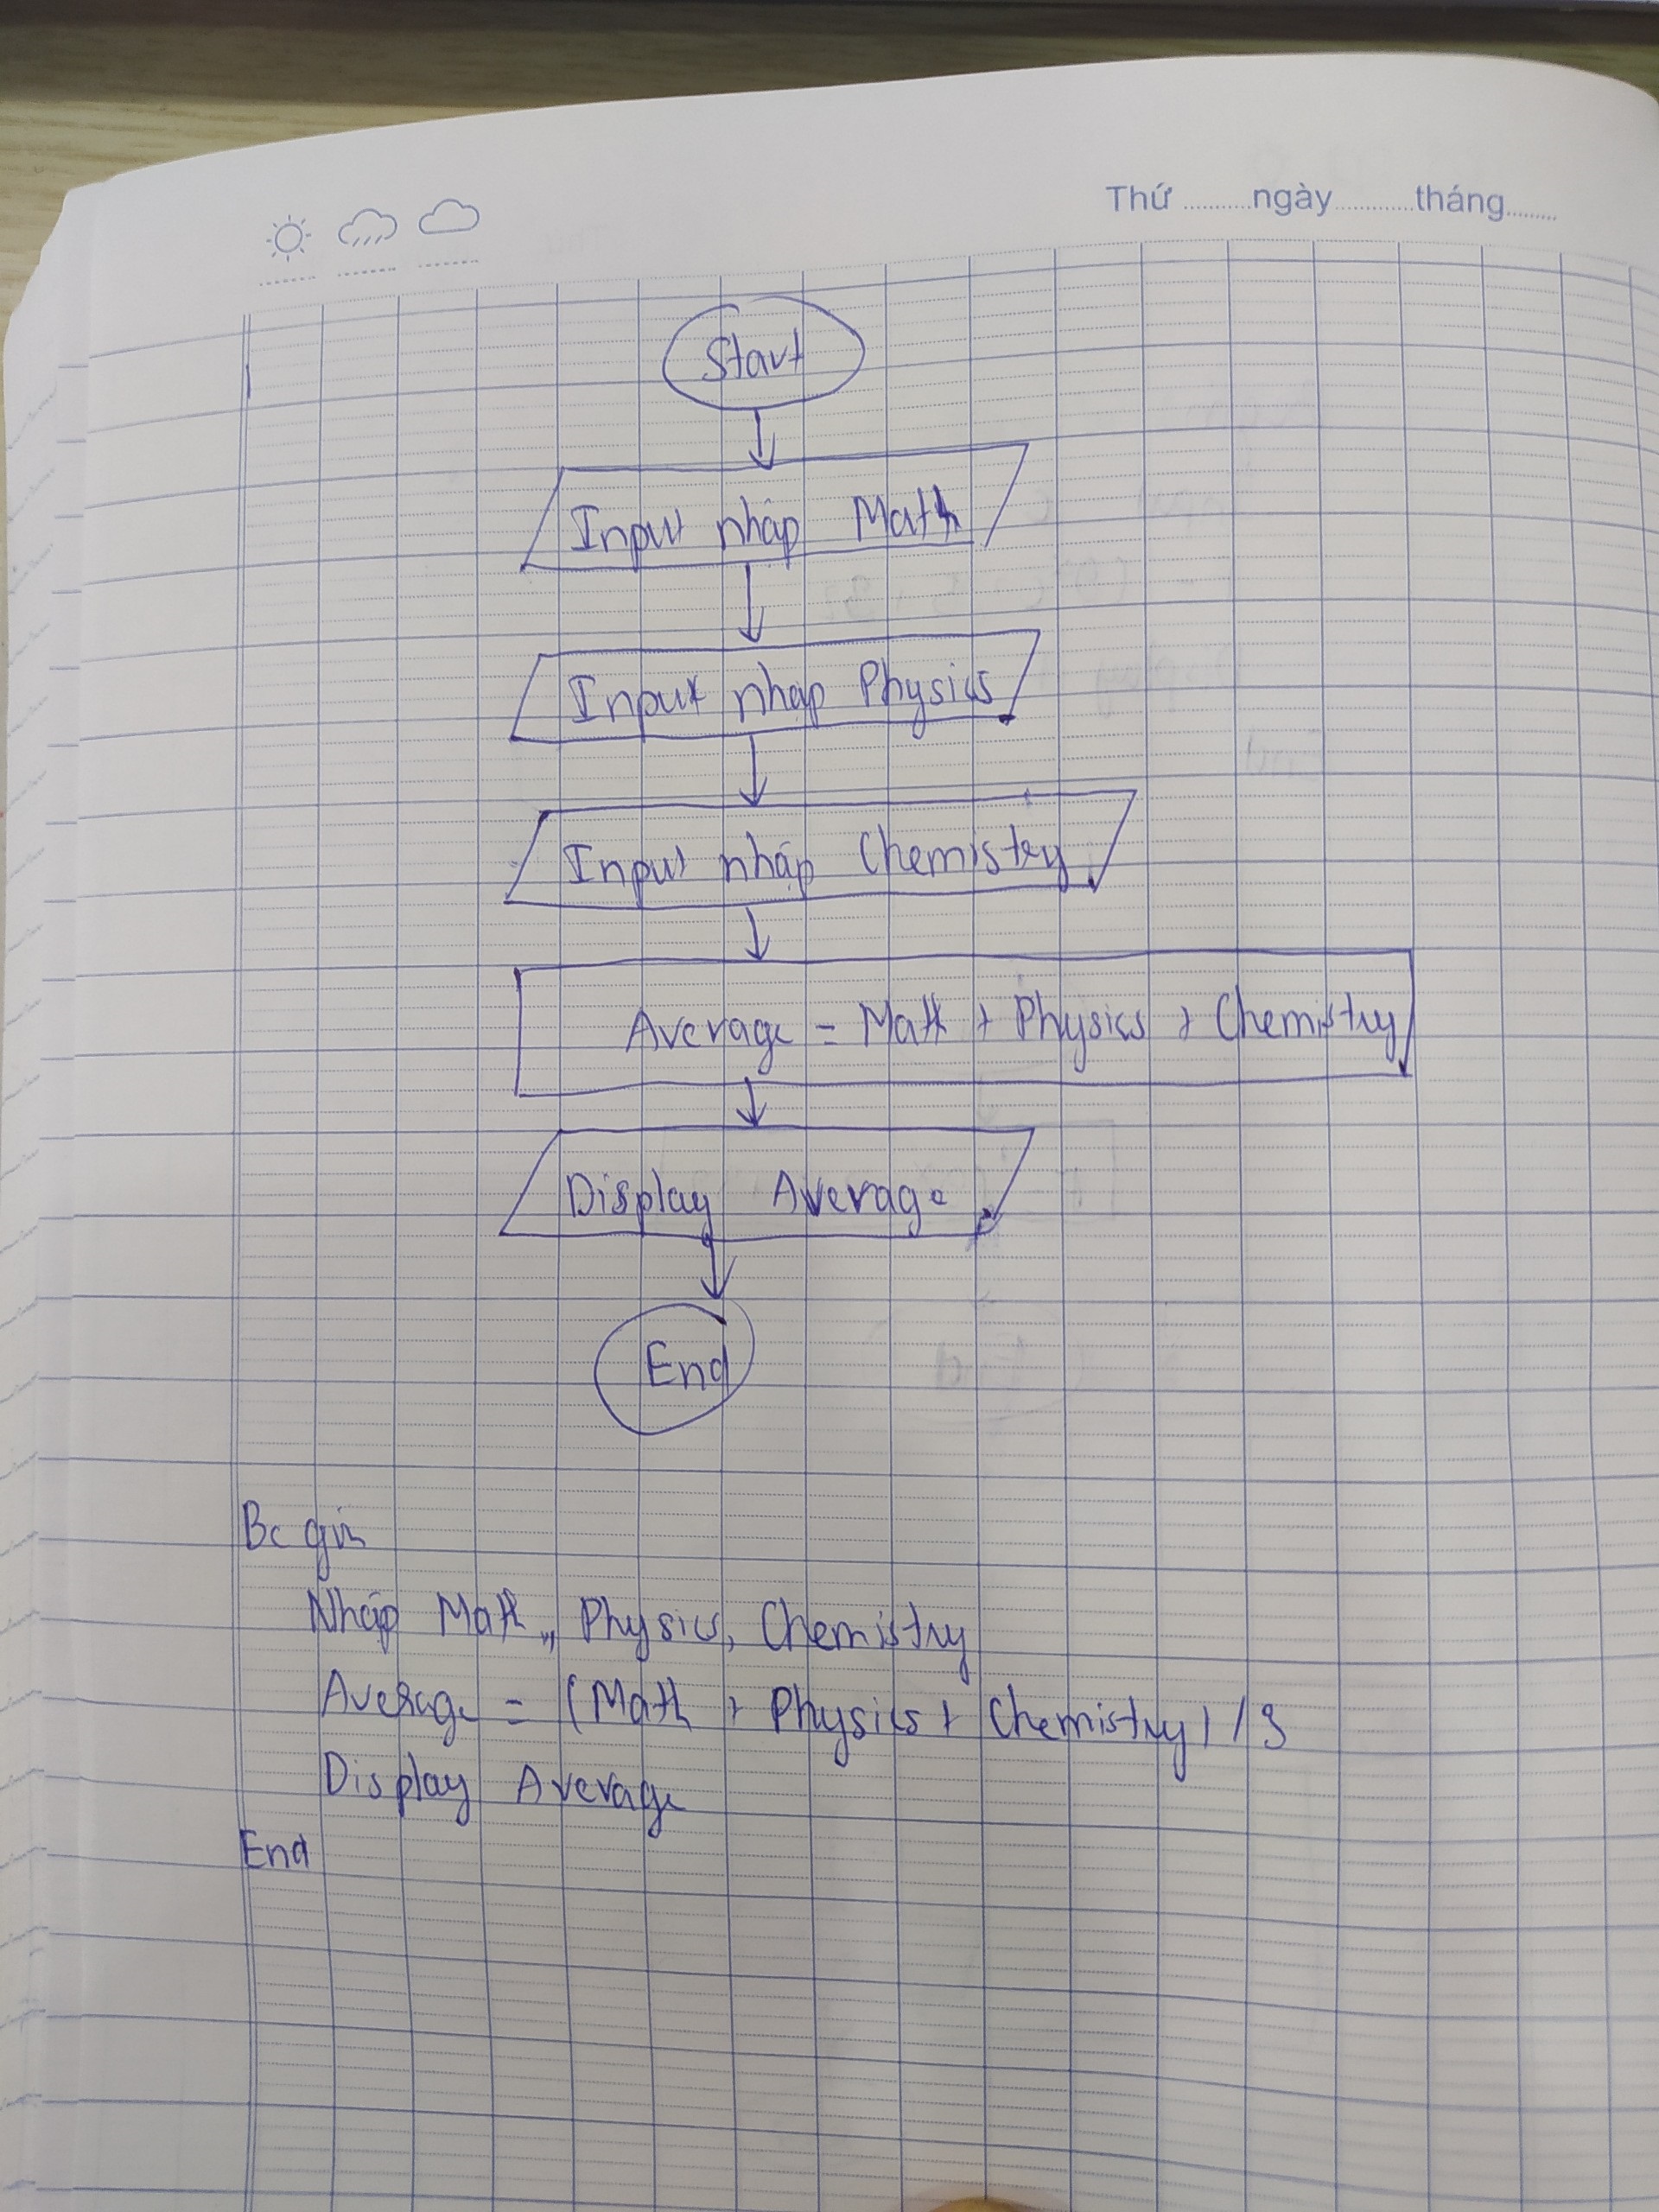 Thứ ngày tháng
Start
Input nhập Math
Input nhập Physics
Input nhập Chemistry
Average = Math + Physics + Chemistry
Display Average
End
Begin
Nhập Math, Physics, Chemistry
Average = (Math + Physics + Chemistry) / 3
Display Average
End